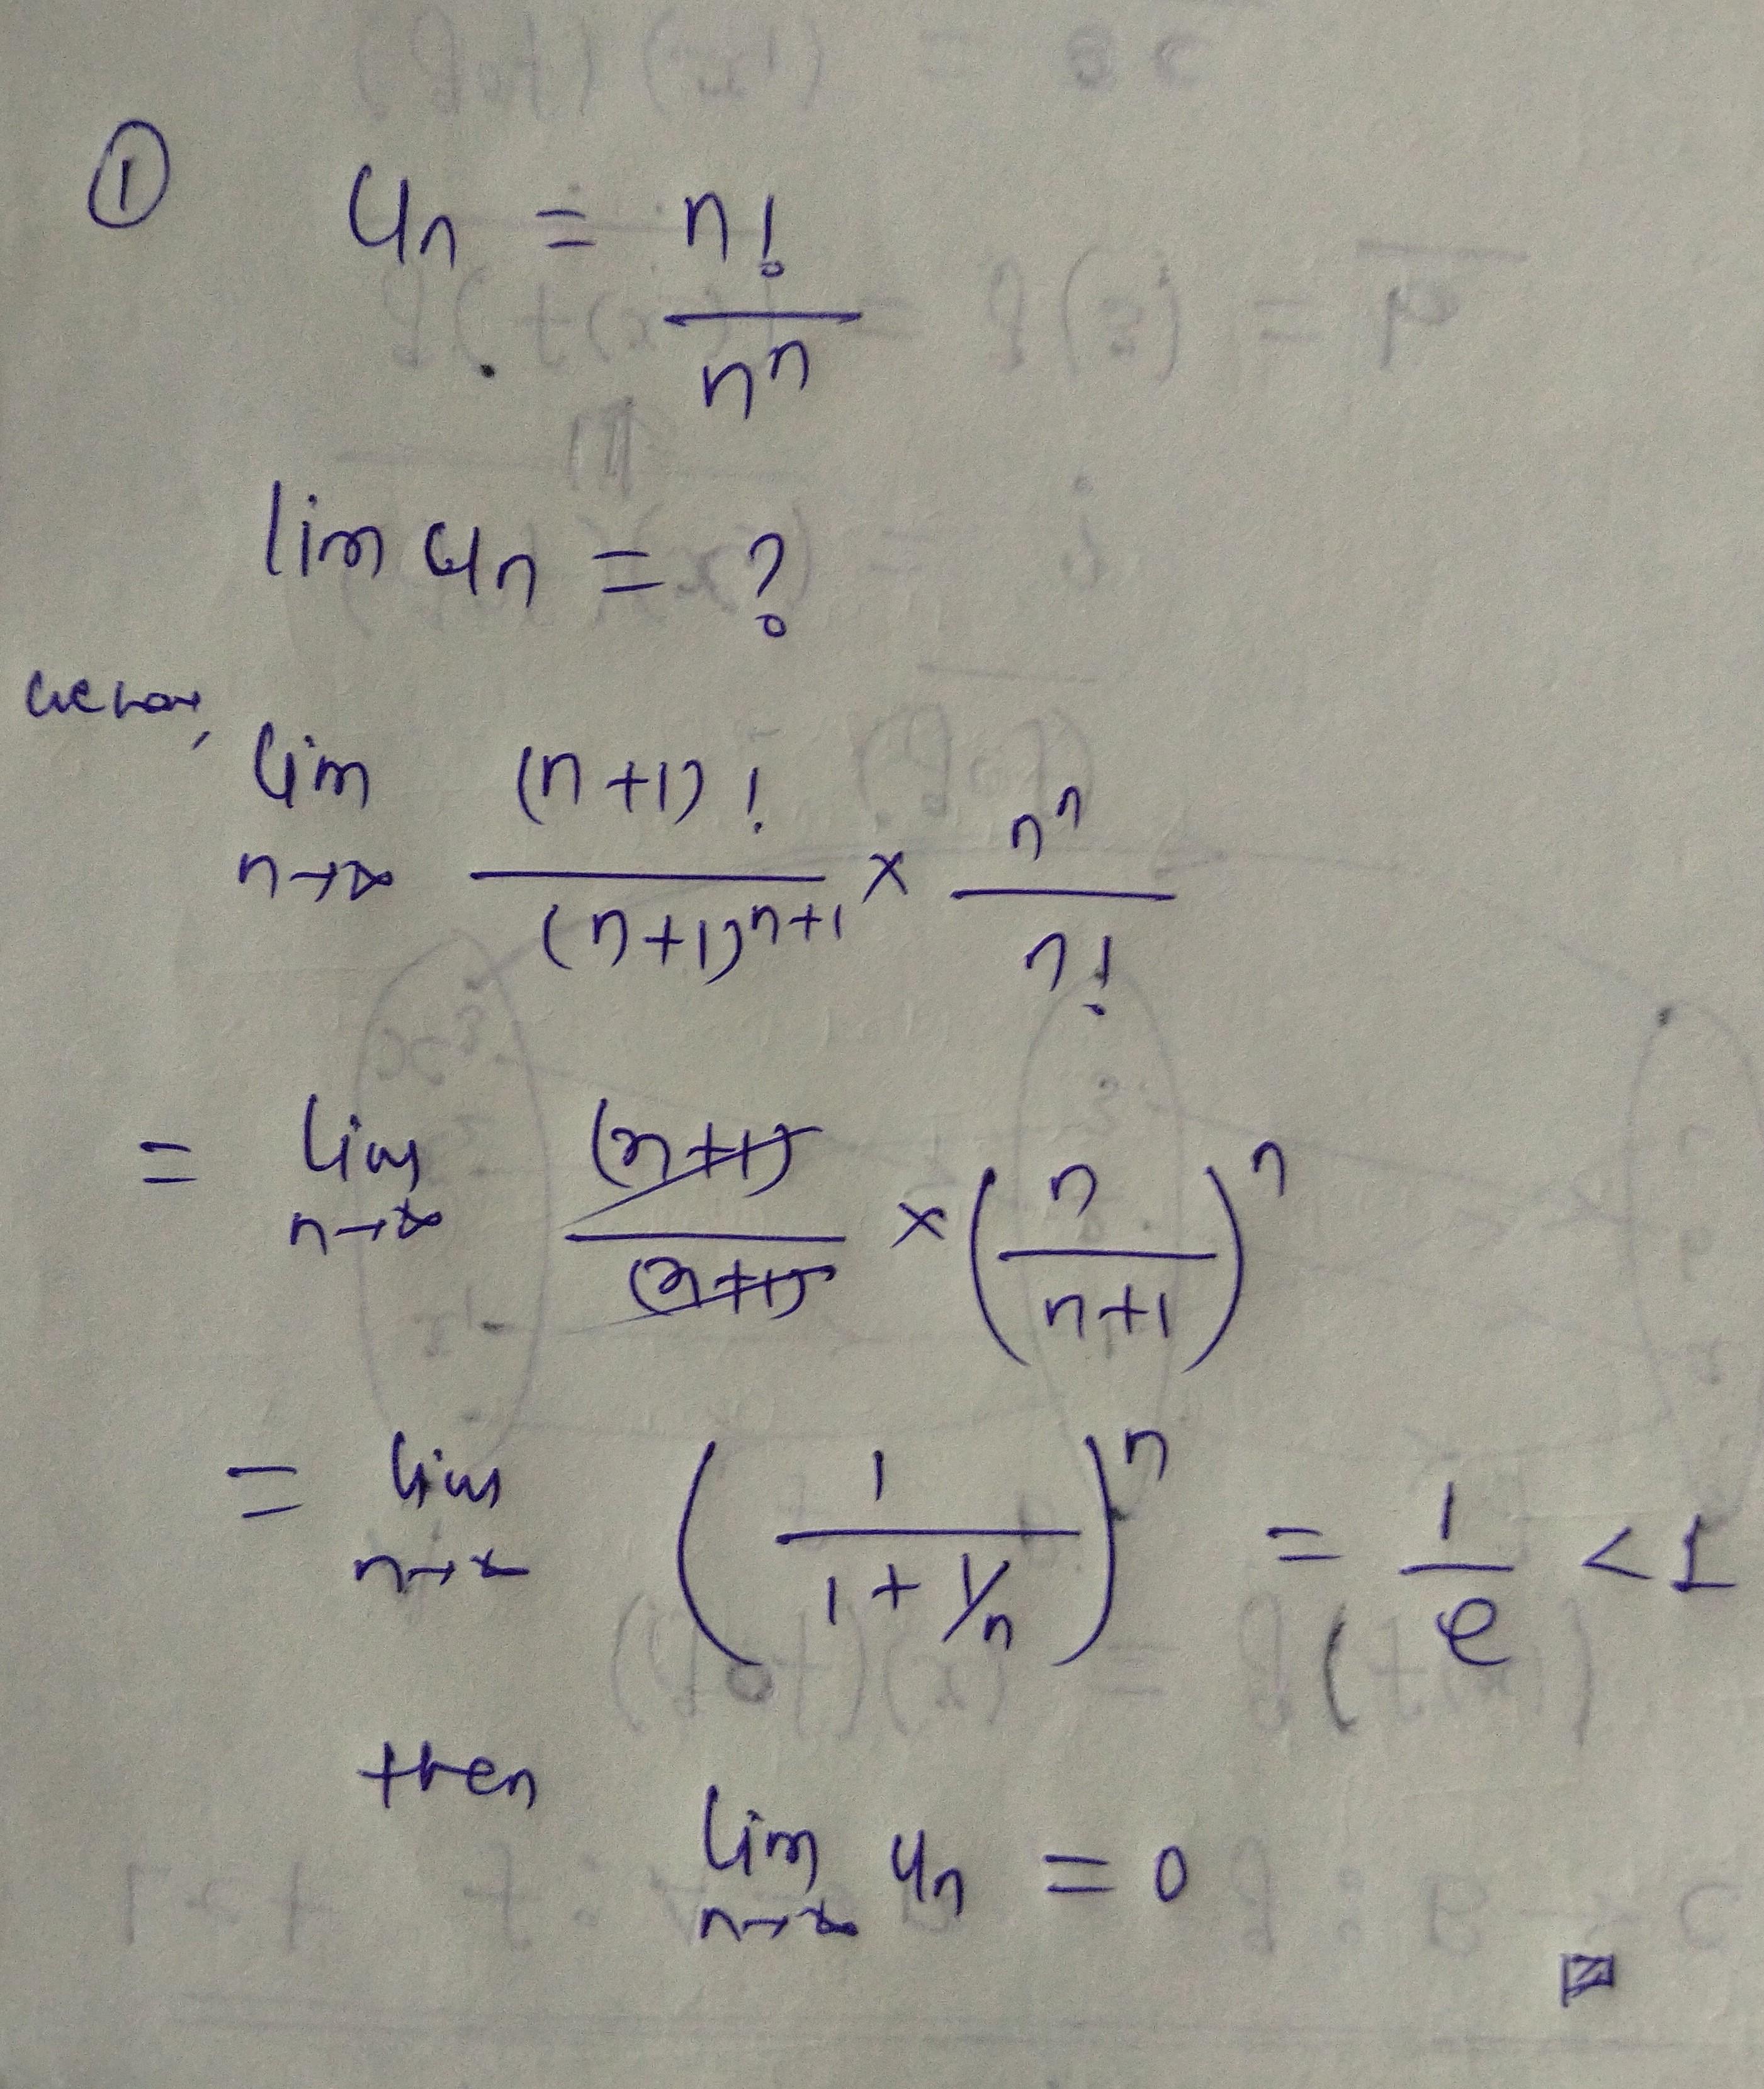 ① u_n = n! / n^n
lim u_n = ?
we have,
lim n→∞ (n+1)! / (n+1)^{n+1} × n^n / n!
= lim n→∞ (n+1) / (n+1) × (n / n+1)^n
= lim n→∞ (1 / 1 + 1/n)^n = 1/e < 1
then
lim n→∞ u_n = 0